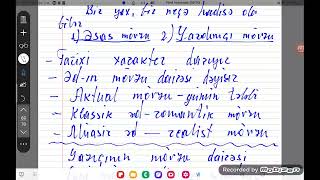 Bir yox, bir neçə hadisə ola
bilər
1) Əsas mövzu 2) Yardımçı mövzu
- Tarixi xarakter daşıyır
- Əd-ın mövzu dairəsi dəyişir
- Aktual mövzu - günün tələbi
- Klassik əd - romantik mövzu
- Müasir əd — realist mövzu
Yazıçının mövzu dairəsi
Recorded by
MoDiZaN